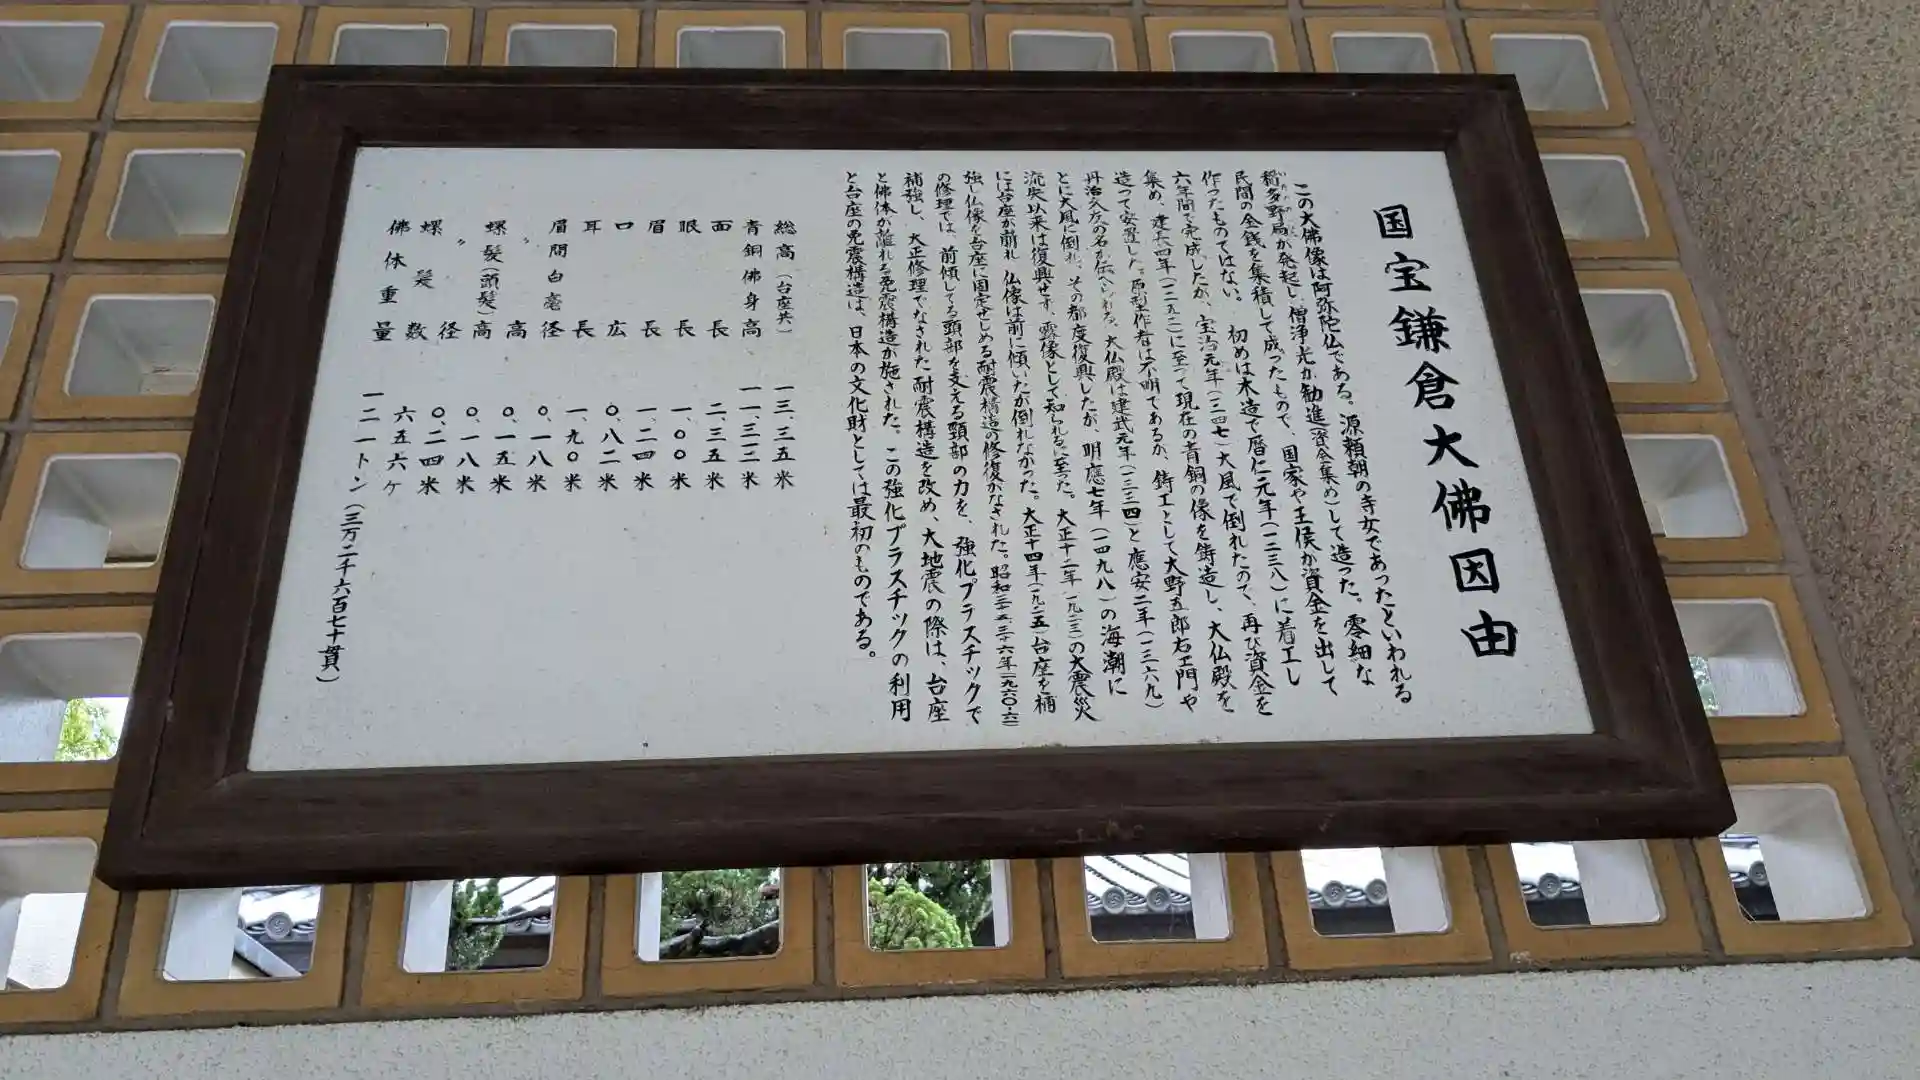 国宝鎌倉大佛因由
この大佛像は阿弥陀仏である。源頼朝の寺女であったといわれる
稲多野局が発起し、僧浄光が勧進(資金集め)して造った。零細な
民間の金銭を集積して成ったもので、国家や王侯が資金を出して
作ったものではない。初めは木造で暦仁元年(一二三八)に着工し
六年間で完成したが、宝治元年(一二四七)大風で倒れたので、再び資金を
集め、建長四年(一二五二)に至って現在の青銅の像を鋳造し、大仏殿を
造って安置した。原型作者は不明であるが、鋳工として大野五郎右エ門や
丹治久友の名が伝へられる。大仏殿は建武元年(一三三四)と應安二年(一三六九)
とに大風に倒れ、その都度復興したが、明應七年(一四九八)の海潮に
流失以来は復興せず、露像として知られるに至った。大正十二年(一九二三)の大震災
には台座が崩れ仏像は前に傾いたが倒れなかった。大正十四年(一九二五)台座を補
強し仏像を台座に固定せしめる耐震構造の修復がなされた。昭和三十五、三十六年(一九六〇・六一)
の修理では、前傾してる頭部を支える頸部の力を、強化プラスチックで
補強し、大正修理でなされた耐震構造を改め、大地震の際は、台座
と佛体が離れる免震構造が施された。この強化プラスチックの利用
と台座の免震構造は、日本の文化財としては最初のものである。
総高(台座共) 一三、三五米
青銅佛身高 一一、三一二米
面長 二、三五米
眼長 一、〇〇米
眉長 一、二四米
口広 〇、八二米
耳長 一、九〇米
眉間白毫径 〇、一八米
〃高 〇、一五米
螺髪(頭髪)高 〇、一八米
〃径 〇、二四米
螺髪数 六五六ケ
佛体重量 一二一トン(三万二千六百七十貫)